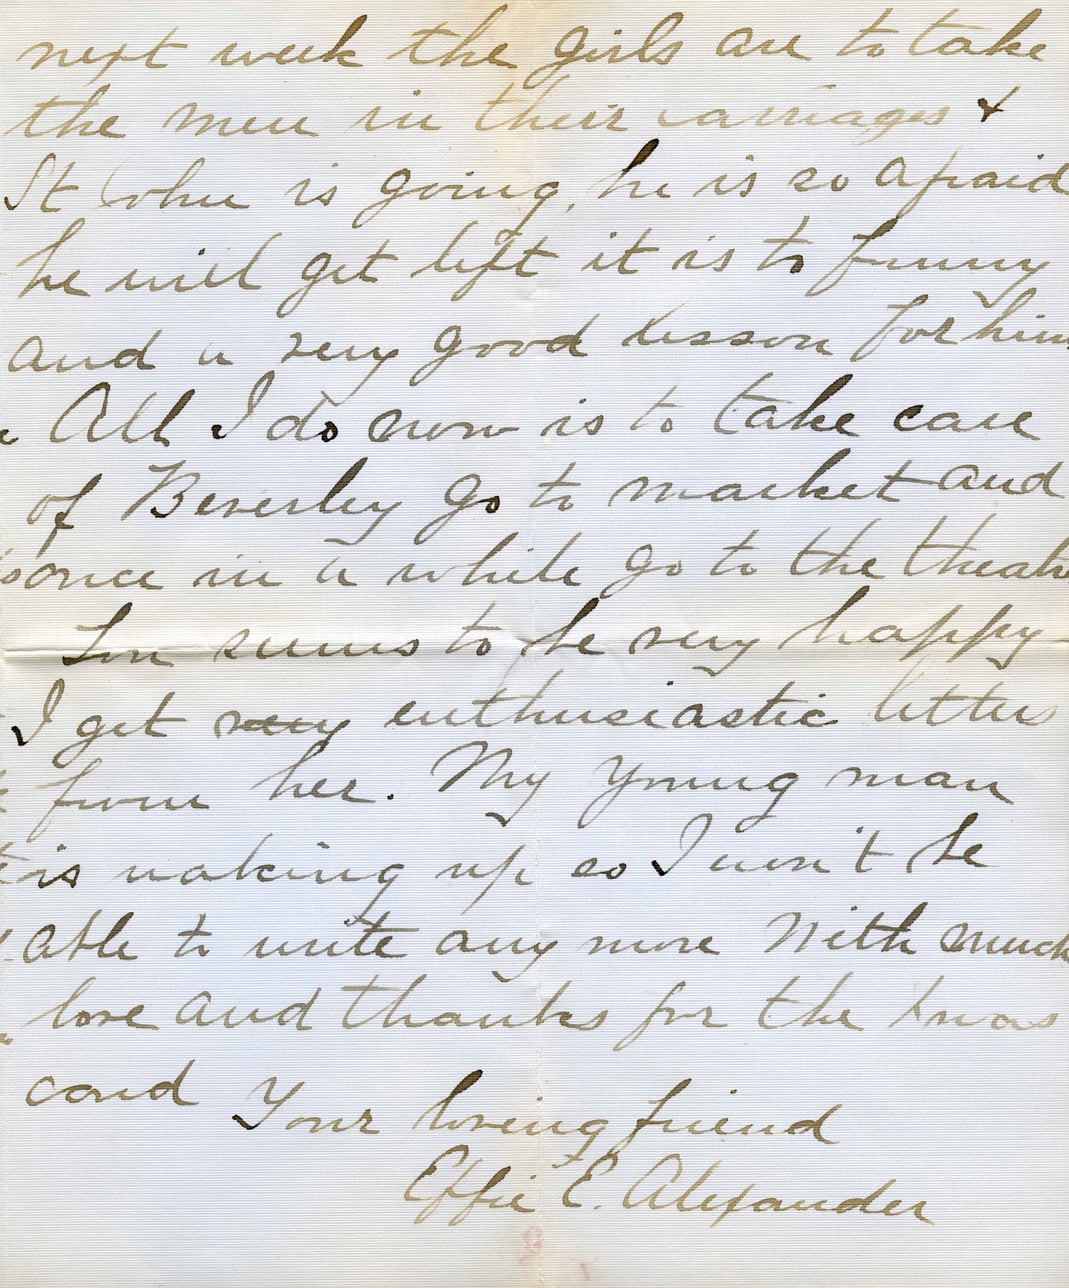 next week the girls are to take
the men in their carriages &
St John is going, he is so afraid
he will get left it is to funny
and a very good lesson for him
All I do now is to take care
of Beverley go to market and
once in a while go to the theatre
Lou seems to be very happy
I get very enthusiastic letters
from her. My young man
is waking up so I won't be
able to write any more With much
love and thanks for the Xmas
card Your loving friend
Effie E. Alexander